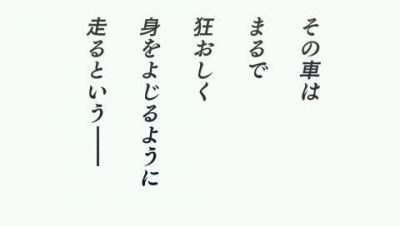 その車は
まるで
狂おしく
身をよじるように
走るという――